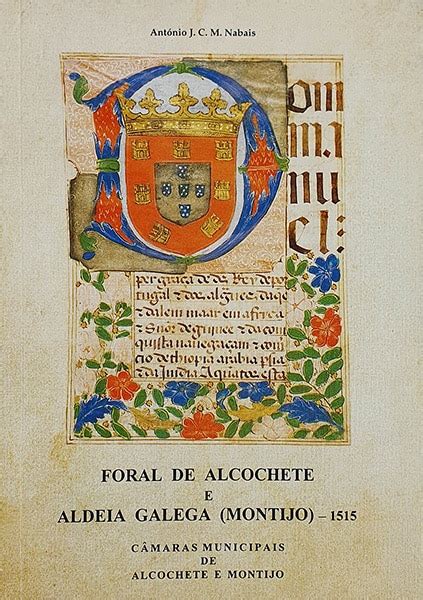 António J. C. M. Nabais
Dom
ma
nu
el:
per graça de ds Rey de por
tugal & dos algᵛes daqᵉ
& dalem maar em africa
& Snõr de guinee & da com
quista nauegacam & com
cio de thiopia arabia psia
& da India A quãtos esta
FORAL DE ALCOCHETE
E
ALDEIA GALEGA (MONTIJO) – 1515
CÂMARAS MUNICIPAIS
DE
ALCOCHETE E MONTIJO